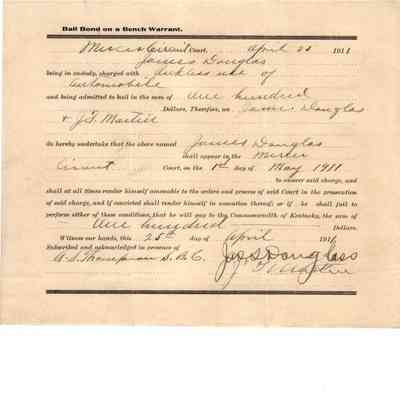 Bail Bond on a Bench Warrant.
Mercer Circuit Court, April 25 1911
James Douglas
being in custody, charged with reckless use of
automobile
and being admitted to bail in the sum of One hundred
Dollars, Therefore, we James Douglas
& J.T. Martin
do hereby undertake that the above named James Douglas
shall appear in the Mercer
Circuit Court, on the 1st day of May 1911
to answer said charge, and
shall at all times render himself amenable to the orders and process of said Court in the prosecution
of said charge, and if convicted shall render himself in execution thereof; or if he shall fail to
perform either of these conditions, that he will pay to the Commonwealth of Kentucky, the sum of
One hundred Dollars.
Witness our hands, this 25th day of April 1911
Subscribed and acknowledged in presence of
A. S. Thompson S. B. C. Jas S Douglass
J. T. Martin